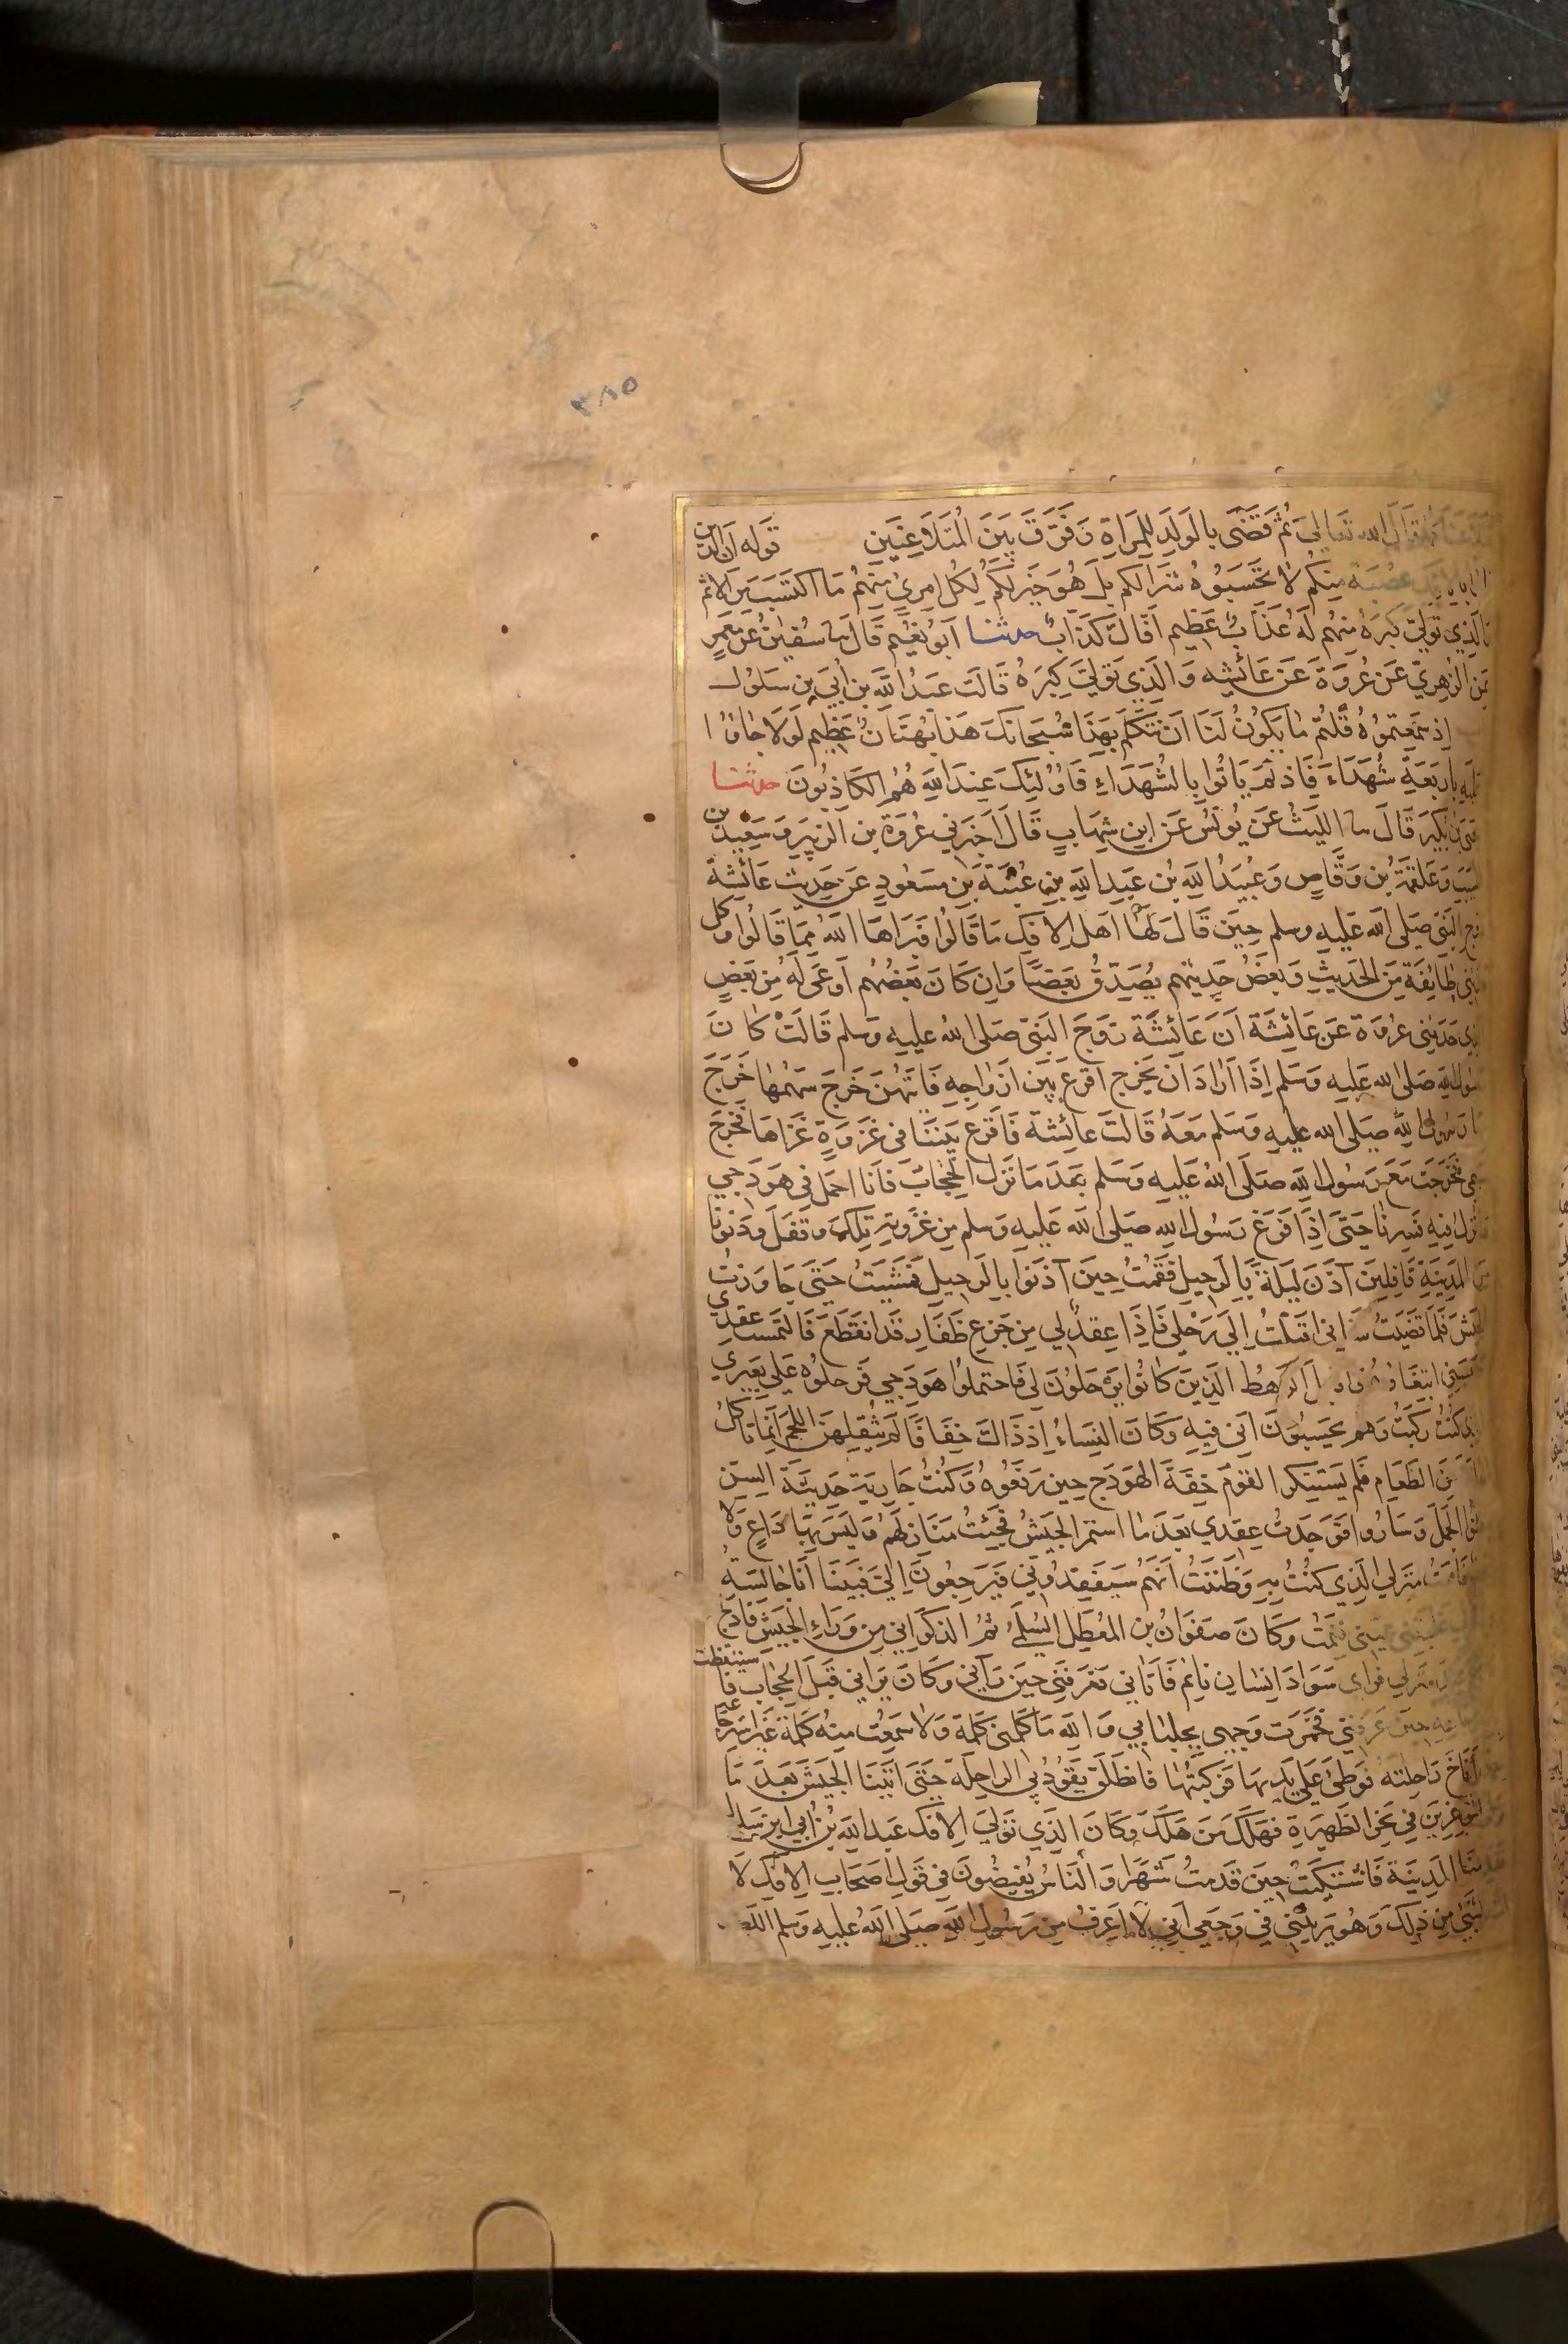 ٣٨٥
قال الله تعالى ثم قضى بالولد للمراة وفرق بين المتلاعنين قوله ان الذين
عصبة منكم لا تحسبوه شرا لكم بل هو خير لكم لكل امرئ منهم ما اكتسب من الاثم
الذي تولى كبره منهم له عذاب عظيم افاك كذاب حدثنا ابو نعيم قال ثنا سفين عن معمر
عن الزهري عن عروة عن عائشه والذي تولى كبره قالت عبد الله بن ابي بن سلول
اذ سمعتموه قلتم ما يكون لنا ان نتكلم بهذا سبحانك هذا بهتان عظيم لولا جاؤا
عليه باربعة شهداء فاذ لم ياتوا بالشهداء فاولئك عند الله هم الكاذبون حدثنا
بن بكير قال ثنا الليث عن يونس عن ابن شهاب قال اخبرني عروة بن الزبير وسعيد بن
وعلقمة بن وقاص وعبيد الله بن عبد الله بن عتبة بن مسعود عن حديث عائشة
زوج النبي صلى الله عليه وسلم حين قال لها اهل الافك ما قالوا فبراها الله مما قالوا وكل
طائفة من الحديث وبعض حديثهم يصدق بعضا وان كان بعضهم اوعى له من بعض
الذي حدثني عروة عن عائشة ان عائشة زوج النبي صلى الله عليه وسلم قالت كان
رسول الله صلى الله عليه وسلم اذا اراد ان يخرج اقرع بين ازواجه فايتهن خرج سهمها خرج
رسول الله صلى الله عليه وسلم معه قالت عائشة فاقرع بيننا في غزوة غزاها فخرج
فخرجت مع رسول الله صلى الله عليه وسلم بعد ما نزل الحجاب فانا احمل في هودجي
وانزل فيه فسرنا حتى اذا فرغ رسول الله صلى الله عليه وسلم من غزوته تلك وقفل ودنونا
من المدينة قافلين آذن ليلة بالرحيل فقمت حين آذنوا بالرحيل فمشيت حتى جاوزت
الجيش فلما قضيت شاني اقبلت الى رحلي فاذا عقد لي من جزع ظفار قد انقطع فالتمست عقدي
ابتغاؤه الرهط الذين كانوا يرحلون لي فاحتملوا هودجي فرحلوه على بعيري
كنت ركبت وهم يحسبون اني فيه وكان النساء اذ ذاك خفافا لم يثقلهن اللحم انما تاكل
من الطعام فلم يستنكر القوم خفة الهودج حين رفعوه وكنت جارية حديثة السن
الجمل وساروا فوجدت عقدي بعد ما استمر الجيش فجئت منازلهم وليس بها داع ولا
منزلي الذي كنت به وظننت انهم سيفقدوني فيرجعون الي فبينا انا جالسة
عيني فنمت وكان صفوان بن المعطل السلمي ثم الذكواني من وراء الجيش فادلج
منزلي فراى سواد انسان نائم فاتاني فعرفني حين رآني وكان يراني قبل الحجاب فاستيقظت
حين عرفني فخمرت وجهي بجلبابي والله ما كلمني كلمة ولا سمعت منه كلمة غير استرجاعه
اناخ راحلته فوطئ على يديها فركبتها فانطلق يقود بي الراحلة حتى اتينا الجيش بعد ما
موغرين في نحر الظهيرة فهلك من هلك وكان الذي تولى الافك عبد الله بن ابي ابن سلول
المدينة فاشتكيت حين قدمت شهرا والناس يفيضون في قول اصحاب الافك لا
بشئ من ذلك وهو يريبني في وجعي اني لا اعرف من رسول الله صلى الله عليه وسلم